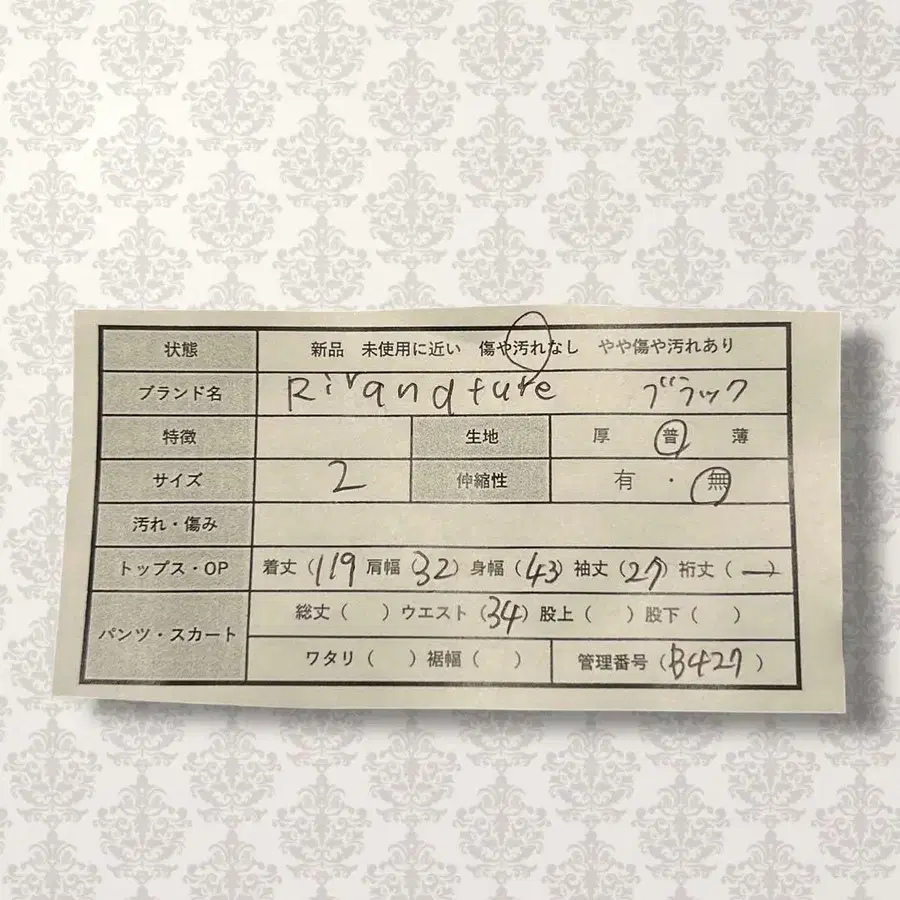 状態 新品 未使用に近い 傷や汚れなし やや傷や汚れあり
ブランド名 Rirandture ブラック
特徴 生地 厚 普 薄
サイズ 2 伸縮性 有 ・ 無
汚れ・傷み
トップス・OP 着丈(119 肩幅(32) 身幅(43 袖丈(27) 裄丈(ー)
パンツ・スカート 総丈( )ウエスト(34)股上( )股下( )
ワタリ( )裾幅( ) 管理番号(B427)